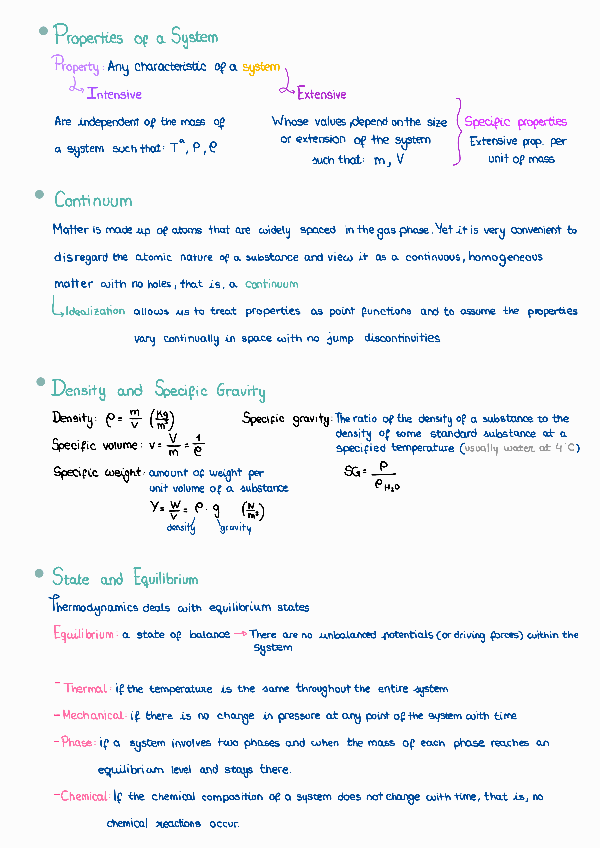 Properties of a System
Property: Any characteristic of a system
Intensive
Extensive
Are independent of the mass of
a system such that: Tª, P, ρ
Whose values depend on the size
or extension of the system
such that: m, V
Specific properties
Extensive prop. per
unit of mass
Continuum
Matter is made up of atoms that are widely spaced in the gas phase. Yet it is very convenient to
disregard the atomic nature of a substance and view it as a continuous, homogeneous
matter with no holes, that is, a continuum
Idealization allows us to treat properties as point functions and to assume the properties
vary continually in space with no jump discontinuities
Density and Specific Gravity
Density: ρ = m/V (Kg/m³)
Specific volume: v = V/m = 1/ρ
Specific weight: amount of weight per
unit volume of a substance
γ = W/V = ρ · g (N/m³)
density gravity
Specific gravity: The ratio of the density of a substance to the
density of some standard substance at a
specified temperature (usually water at 4°C)
SG = ρ/ρH₂O
State and Equilibrium
Thermodynamics deals with equilibrium states
Equilibrium: a state of balance → There are no unbalanced potentials (or driving forces) within the
system
- Thermal: if the temperature is the same throughout the entire system
- Mechanical: if there is no change in pressure at any point of the system with time
- Phase: if a system involves two phases and when the mass of each phase reaches an
equilibrium level and stays there.
- Chemical: If the chemical composition of a system does not change with time, that is, no
chemical reactions occur.